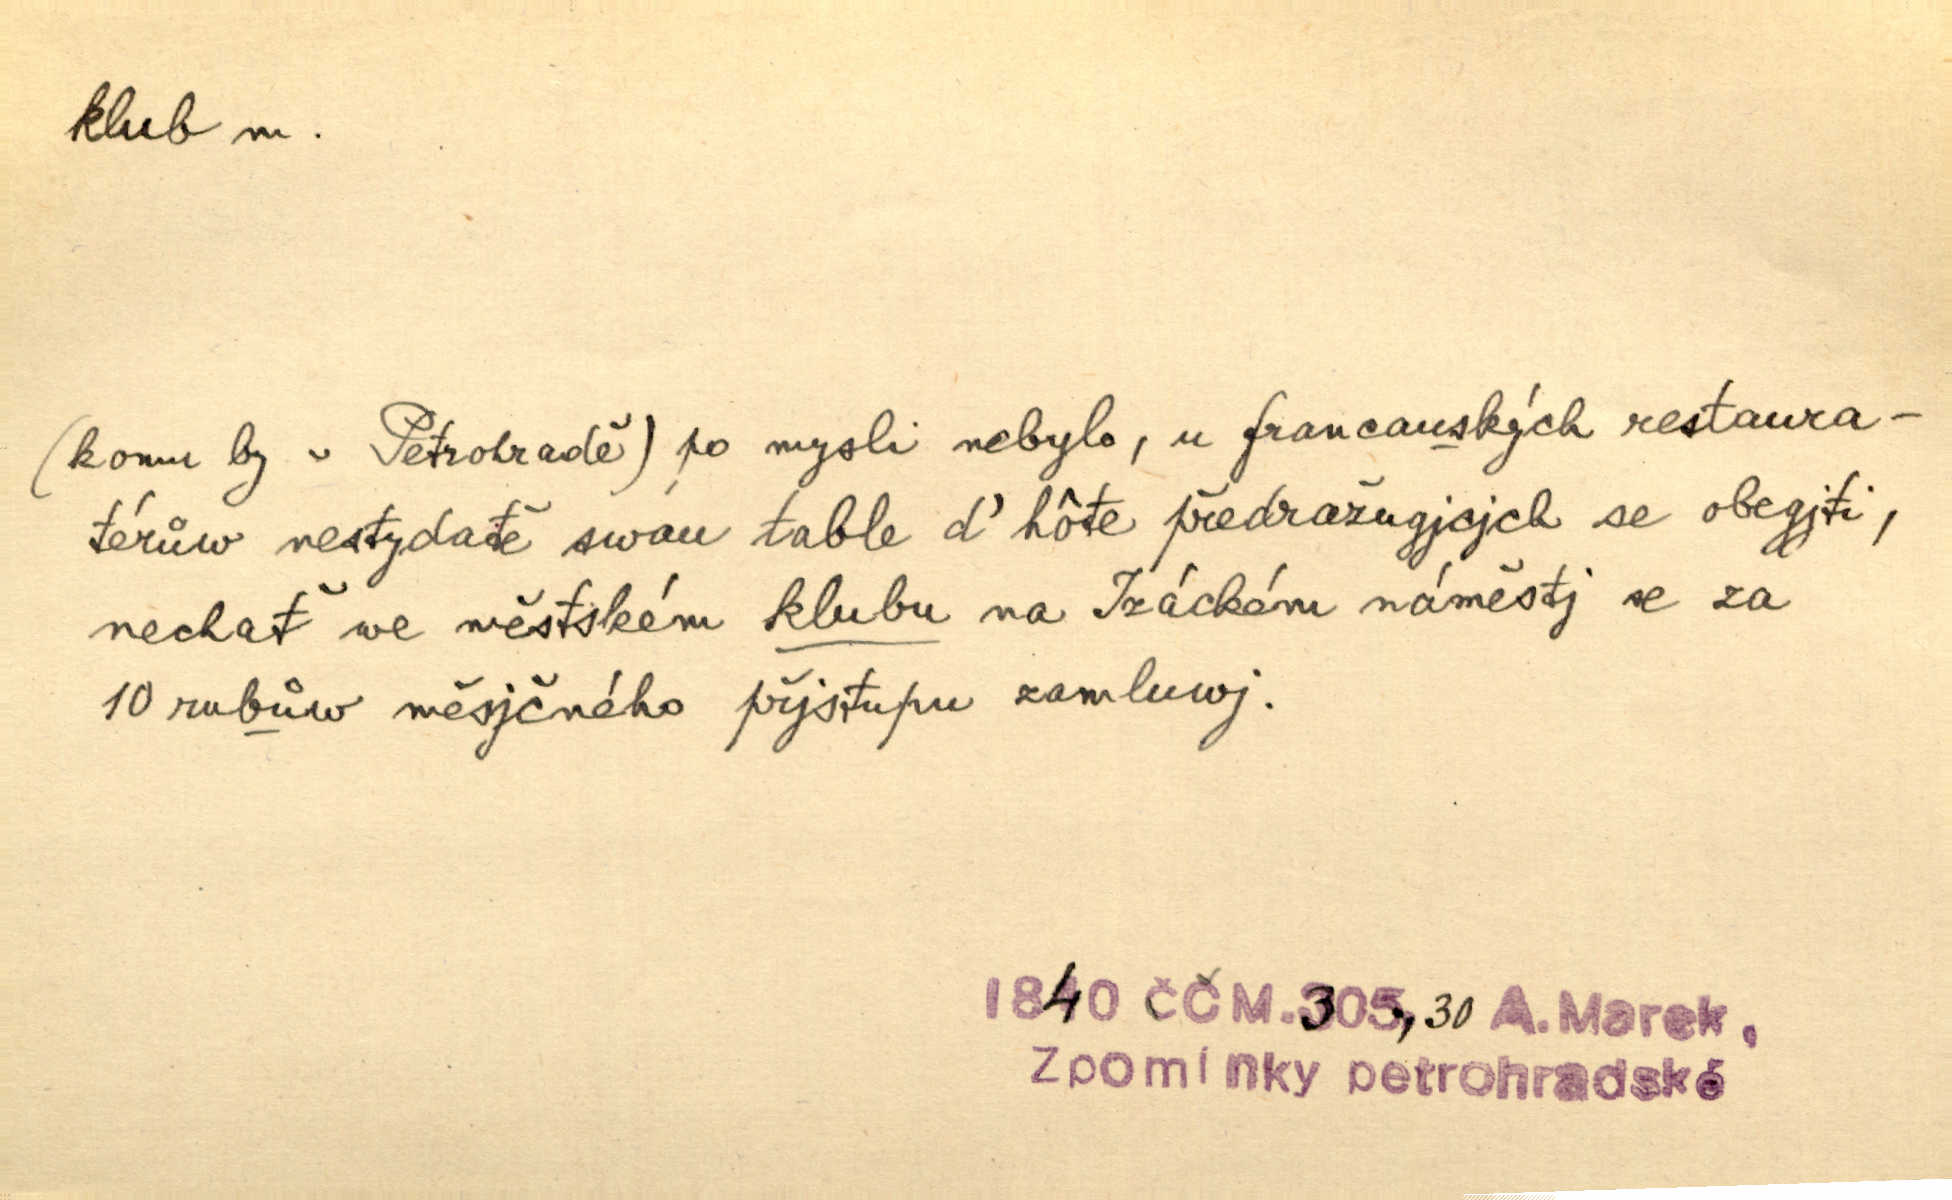 klub m.
(komu by v Petrohradě) po mysli nebylo, u francauských restaura-
térůw nestydatě swáu table d'hôte předražugjcjch se obegjti,
nechať we městském klubu na Izáckém náměstj se za
10 rubůw měsjčného přjstupu zamluwj.
1840 ČČM.305,30 A. Marek,
Zpomínky petrohradské